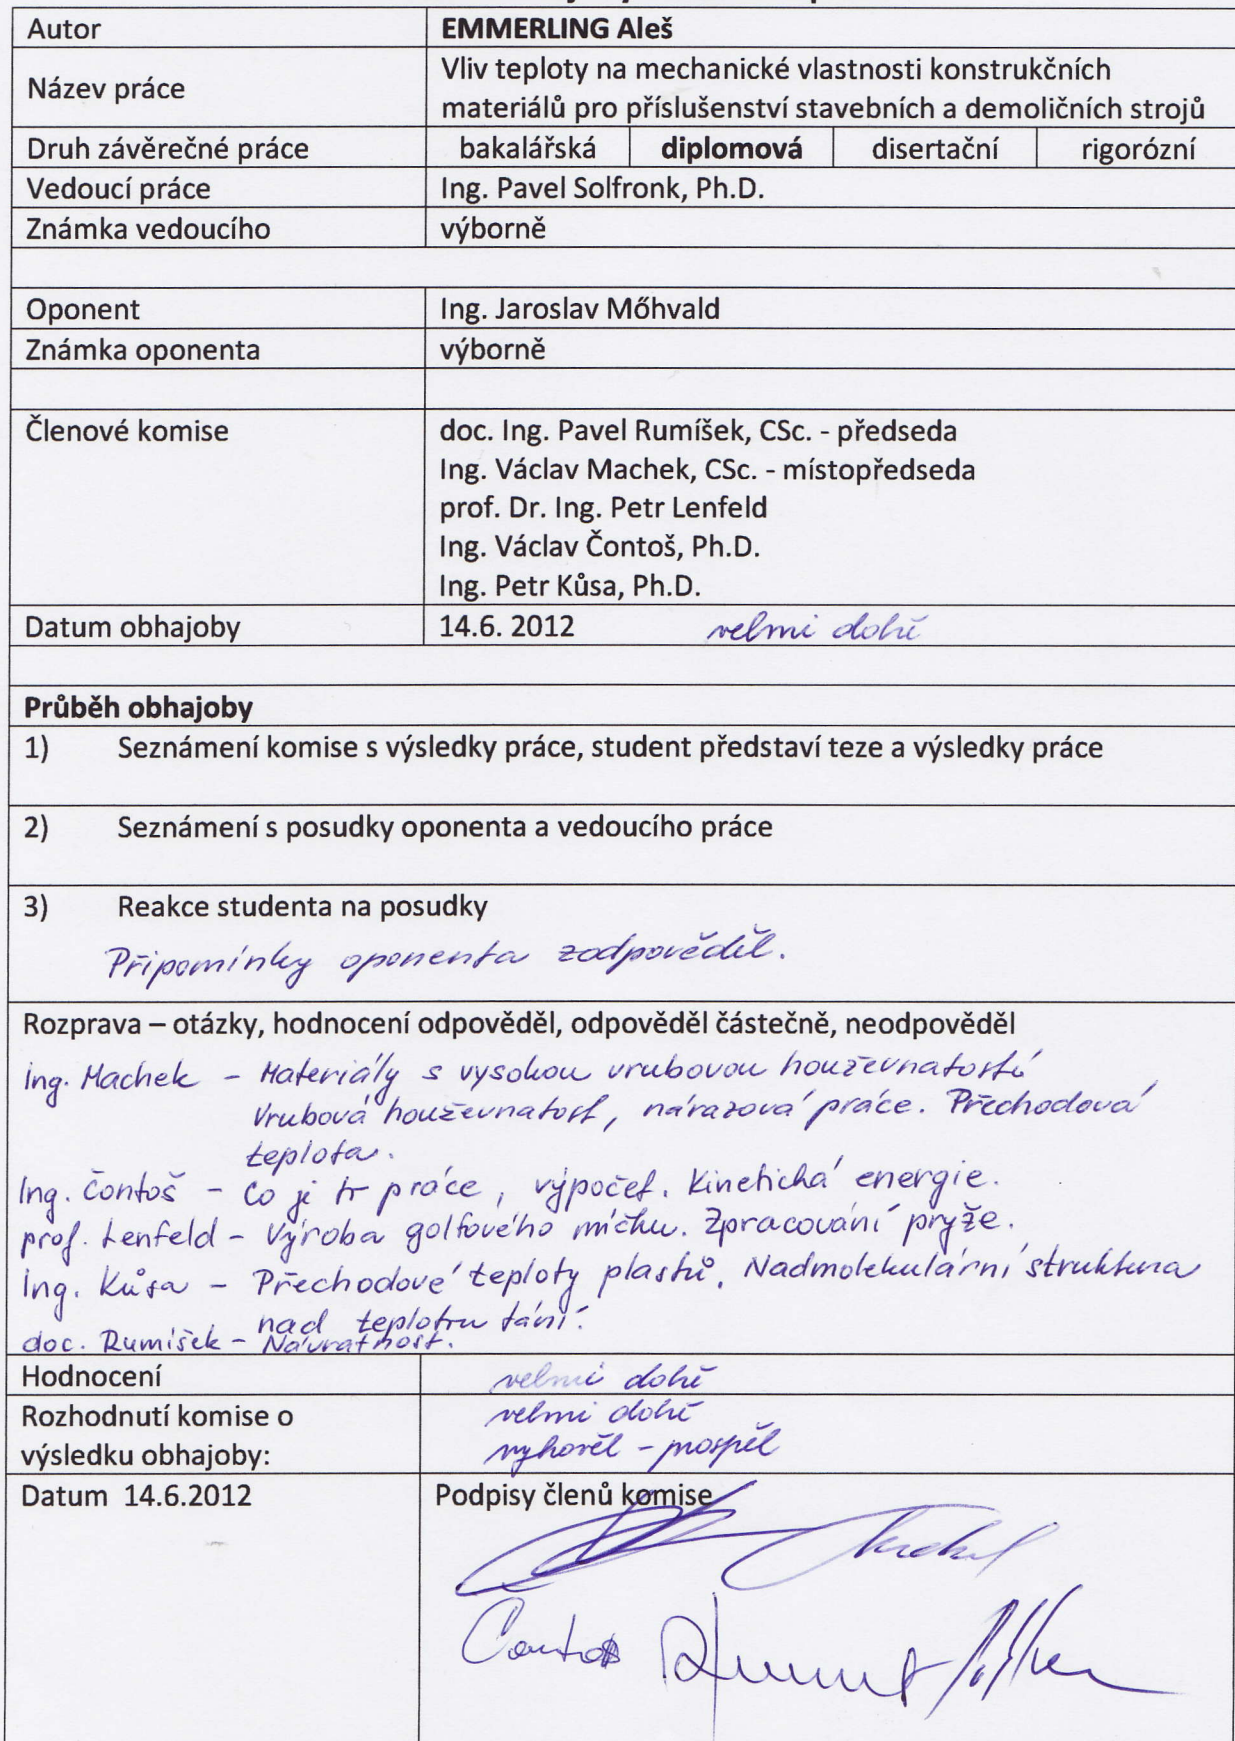 Autor EMMERLING Aleš
Název práce Vliv teploty na mechanické vlastnosti konstrukčních
materiálů pro příslušenství stavebních a demoličních strojů
Druh závěrečné práce bakalářská diplomová disertační rigorózní
Vedoucí práce Ing. Pavel Solfronk, Ph.D.
Známka vedoucího výborně
Oponent Ing. Jaroslav Mőhvald
Známka oponenta výborně
Členové komise doc. Ing. Pavel Rumíšek, CSc. - předseda
Ing. Václav Machek, CSc. - místopředseda
prof. Dr. Ing. Petr Lenfeld
Ing. Václav Čontoš, Ph.D.
Ing. Petr Kůsa, Ph.D.
Datum obhajoby 14.6. 2012 velmi dobře
Průběh obhajoby
1) Seznámení komise s výsledky práce, student představí teze a výsledky práce
2) Seznámení s posudky oponenta a vedoucího práce
3) Reakce studenta na posudky
Připomínky oponenta zodpověděl.
Rozprava – otázky, hodnocení odpověděl, odpověděl částečně, neodpověděl
Ing. Machek - Materiály s vysokou vrubovou houževnatostí
Vrubová houževnatost, nárazová práce. Přechodová
teplota.
Ing. Čontoš - Co je to práce, výpočet. Kinetická energie.
prof. Lenfeld - Výroba golfového míčku. Zpracování pryže.
Ing. Kůsa - Přechodové teploty plastů. Nadmolekulární struktura
nad teplotou tání.
doc. Rumíšek - Návratnost.
Hodnocení velmi dobře
Rozhodnutí komise o velmi dobře
výsledku obhajoby: vyhověl - prospěl
Datum 14.6.2012 Podpisy členů komise